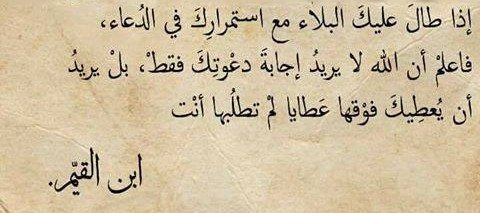 إذا طالَ عليكَ البلاء مع استمراركَ في الدُعاء،
فاعلمْ أن الله لا يريدُ إجابةَ دعْوتِكَ فقطْ، بلْ يريدُ
أن يُعطِيكَ فوْقها عَطايا لمْ تطلُبها أنْت
ابن القيّم.